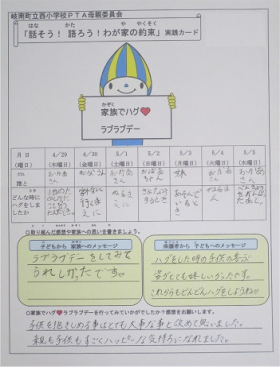 岐南町立西小学校PTA母親委員会
「話そう！語ろう！わが家の約束」実践カード
家族でハグ♥
ラブラブデー
月日
(曜日)
4/29
(水曜日)
4/30
(木曜日)
5/1
(金曜日)
5/2
(土曜日)
5/3
(日曜日)
5/4
(月曜日)
5/5
(火曜日)
誰と
どんな時に
ハグをしま
したか
○取り組んだ感想や家族への思いを書きましょう。
子どもから 家族へのメッセージ
ラブラブデーをしてみて
うれしかったです。
保護者から 子どもへのメッセージ
ハグをした時の子供の喜ぶ
姿がとても嬉しかったです。
これからもどんどんハグをしようね!!
○家族でハグ♥ラブラブデーを行ってみていかがでしたか？感想をお願いします。
子供を抱きしめる事はとても大事な事と改めて思いました。
親も子供もすごくハッピーな気持ちになれました。